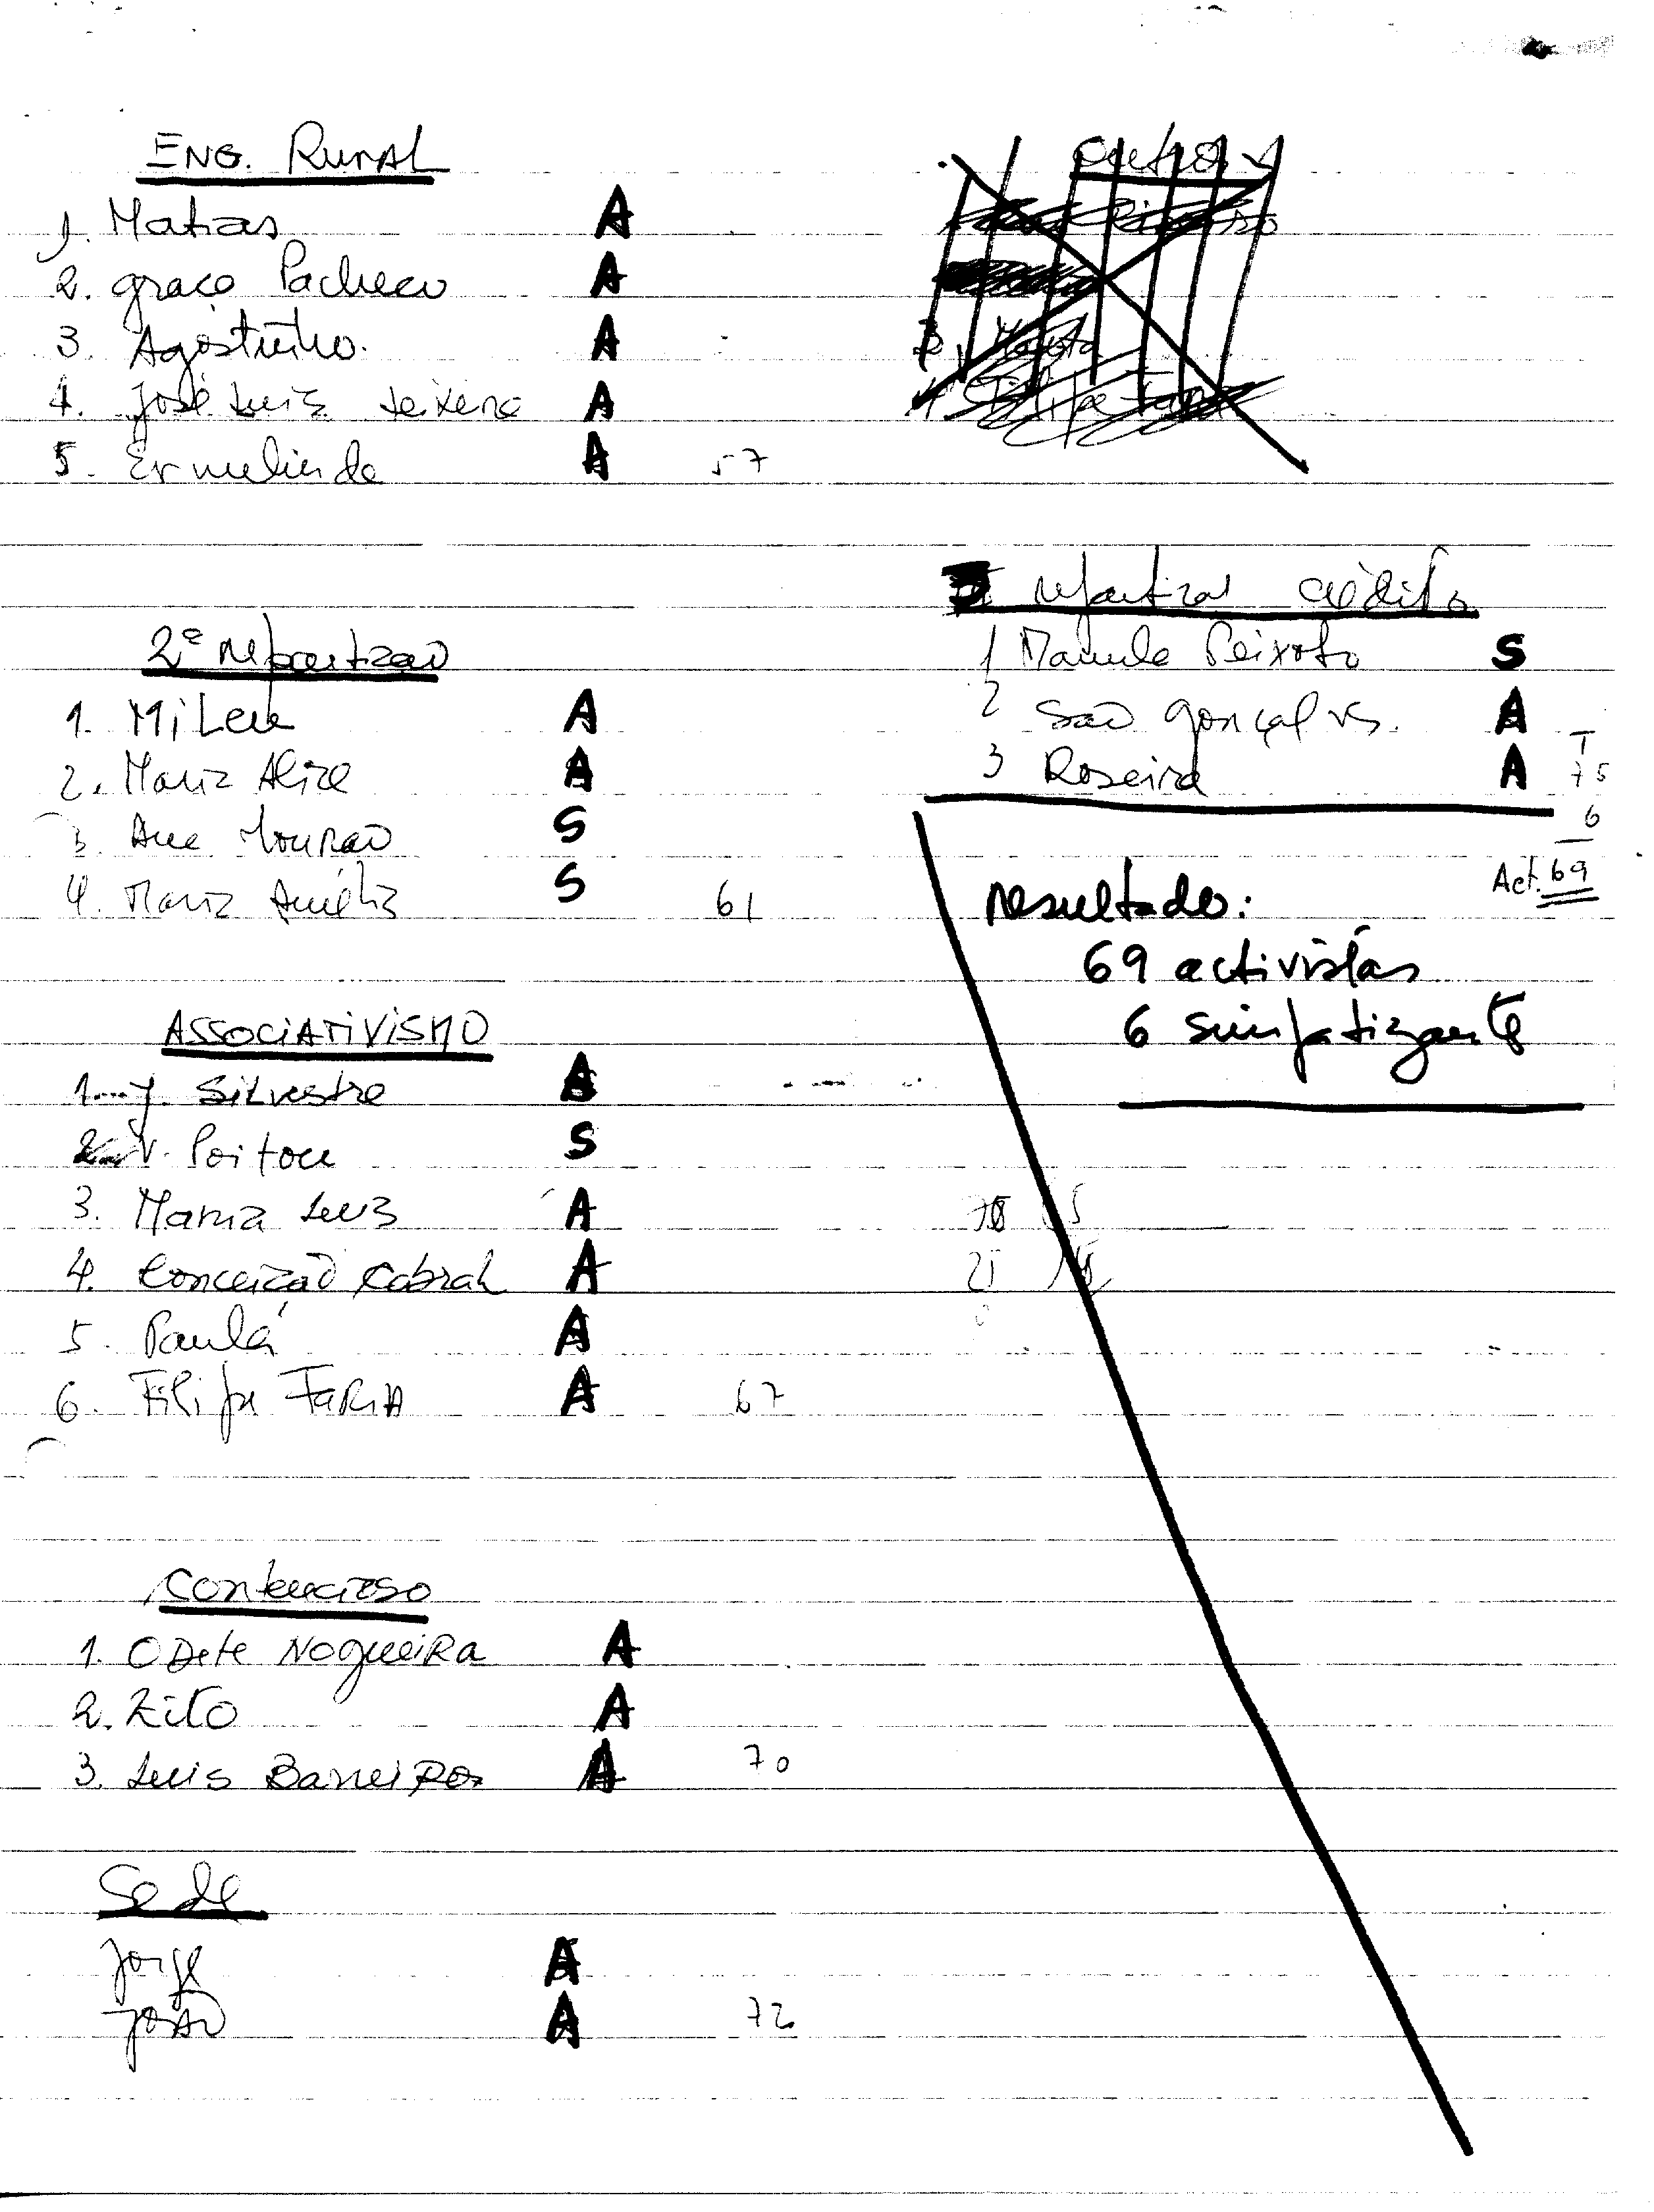 ENG. Rural
1. Matias A
2. Graça Pacheco A
3. Agostinho. A
4. José Luiz Teixeira A
5. Ermelinda A 57
2ª Repartição
1. Milene A
2. Maria Alice A
3. Ana Mourão S
4. Maria Amélia S 61
ASSOCIATIVISMO
1. J. Silvestre A
2. V. Poitou S
3. Maria Luis A
4. Conceição Cabral A
5. Paula A
6. Filipa FARIA A 67
Contencioso
1. ODete Nogueira A
2. Zito A
3. Luis Barreiros A 70
Sede
Jorge A
João A 72
Outros
3. 
4. Filipa Faria
Repartição crédito
1 Manuela Peixoto S
2 São Gonçalves. A
3 Roseira A
T
75
6
Act. 69
Resultado:
69 activistas
6 simpatizantes